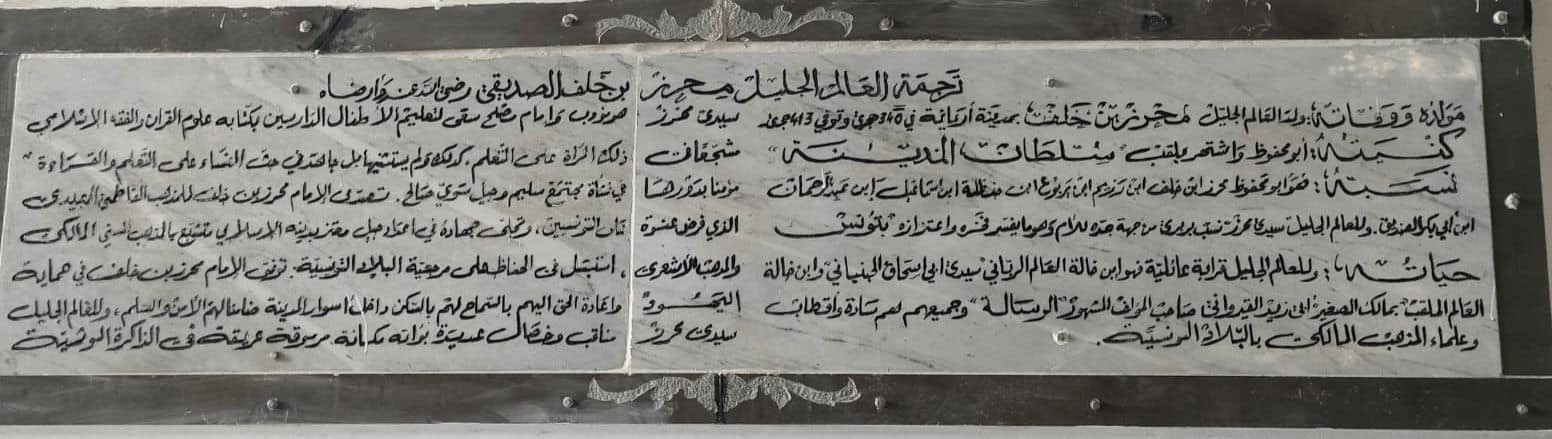 ترجمة العالم الجليل محرز بن خلف الصديقي رضي الله عنه وأرضاه
مولده ووفاته: ولد العالم الجليل محرز بن خلف بمدينة أريانة في 340 هجري وتوفي 413 هجري
كنيته: أبو محفوظ واشتهر بلقب "سلطان المدينة"
نسبه: هو أبو محفوظ محرز ابن خلف ابن رزيم ابن يربوع ابن حنظلة ابن اسماعيل ابن عبد الرحمان
ابن أبي بكر الصديق. وللعالم الجليل سيدي محرز نسب بربري من جهة جده للأم وهو ما يفسر فخره واعتزازه بتونس
حياته: وللعالم الجليل قرابة عائلية فهو ابن خالة العالم الرباني سيدي ابي اسحاق الجبنياني وابن خالة
العالم الملقب بمالك الصغير أبي زيد القيرواني صاحب المؤلف المشهور "الرسالة" وجميعهم لهم سادة وأقطاب
وعلماء المذهب المالكي بالبلاد التونسية.
سيدي محرز هو مؤدب وإمام مصلح سعى لتعليم الأطفال الدارسين بكتابه علوم القرآن والفقه الإسلامي
شجع ذلك المرأة على التعلم. كذلك ولم يستثنيها بل جاهد في حث النساء على التعلم والقراءة
مؤمنا بدورها في نشأة مجتمع سليم وجيل سوي صالح. تصدى الإمام محرز بن خلف للمذهب الفاطمي العبيدي
الذي فرض عنوة التونسيين، وتجلى جهاده في اعداد جيل معتز بدينه الإسلامي متشبع بالمذهب السني المالكي
والمذهب الأشعري، استبسل في الحفاظ على مرجعية البلاد التونسية. توفق الإمام محرز بن خلف في حماية
اليهود واعادة الحق اليهم بالسماح لهم بالسكن داخل أسوار المدينة ضامنا لهم الأمن والسلم، وللعالم الجليل
سيدي محرز مناقب وخصال عديدة بوأته مكانة مرموقة عريقة في الذاكرة التونسية